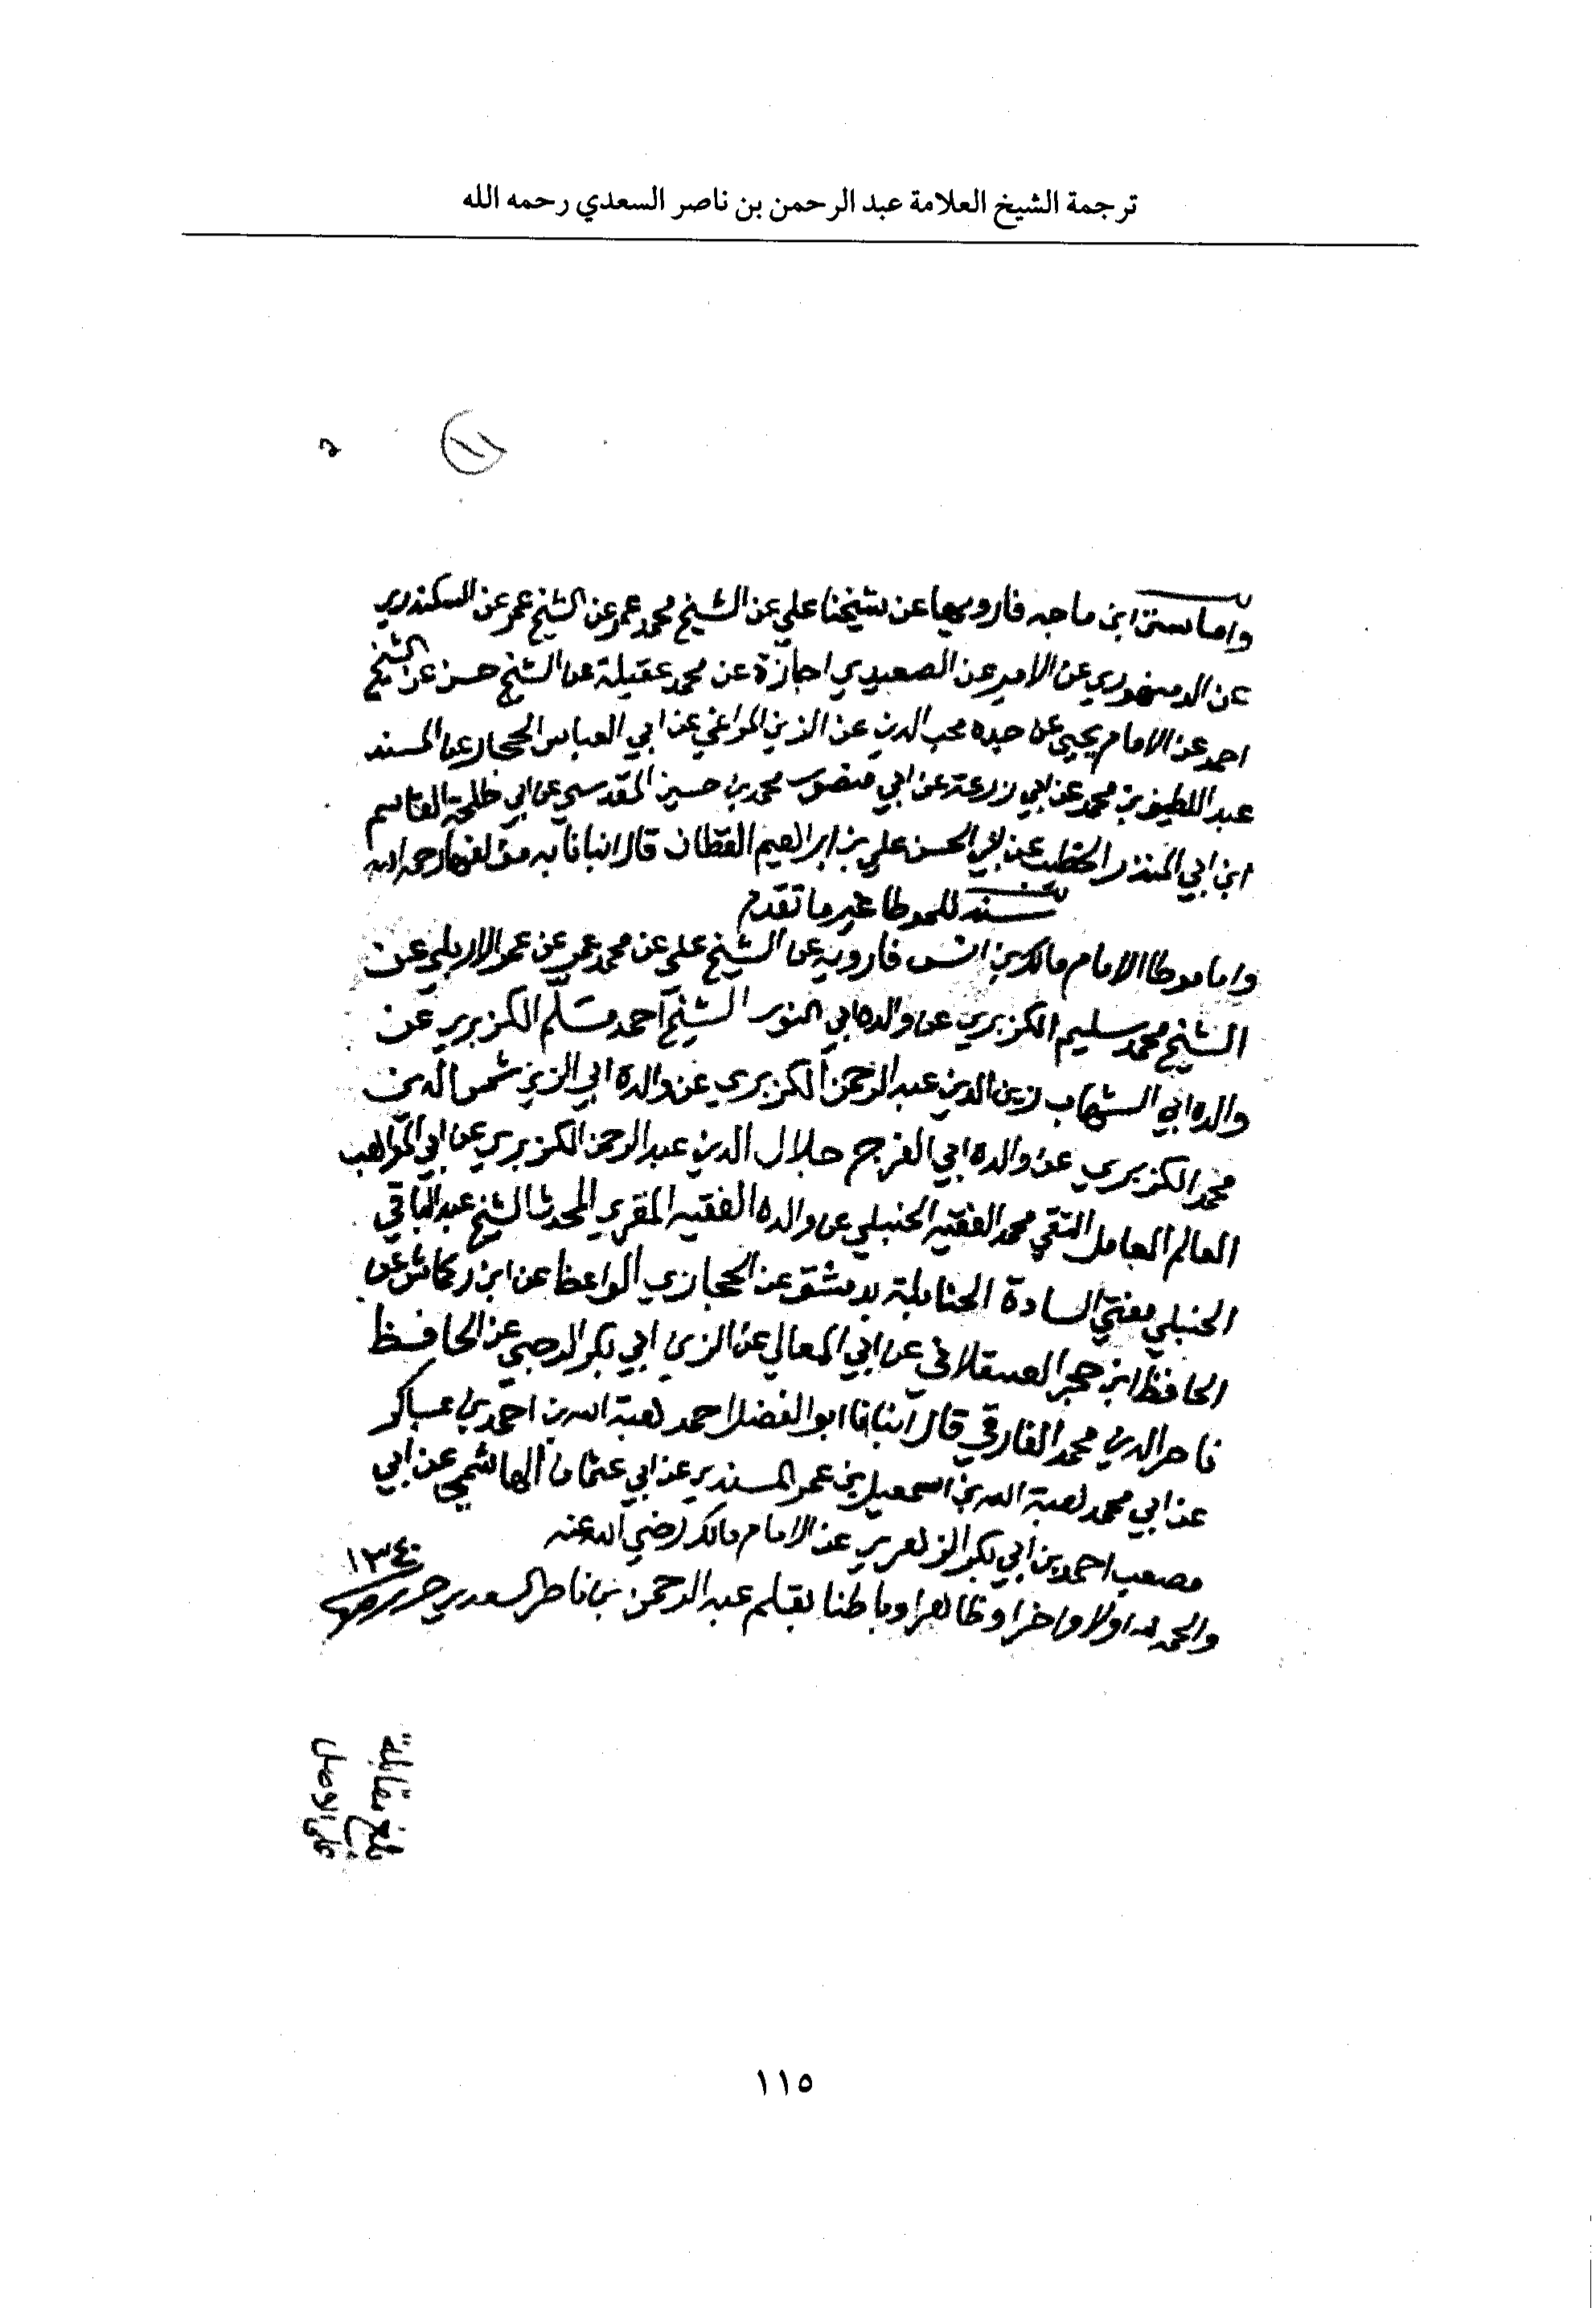 ترجمة الشيخ العلامة عبد الرحمن بن ناصر السعدي رحمه الله
١١
واما سنن ابن ماجه فارويها عن شيخنا علي عن الشيخ محمد عمر عن الشيخ عمر عن السكندري
عن الدمنهوري عن الامير عن الصعيدي اجازة عن محمد عقيلة عن الشيخ حسن عن الشيخ
احمد عن الامام يحيى عن جده محب الدين عن الزين المراغي عن ابي العباس الحجار عن المسند
عبد اللطيف بن محمد عن ابي زرعة عن ابي منصور محمد بن حسين المقدسي عن ابي طلحة القاسم
ابن ابي المنذر الخطيب عن ابي الحسن علي بن ابراهيم القطان قال انبانا به مؤلفها رحمه الله
سند للموطا غير ما تقدم
واما موطا الامام مالك بن انس فارويه عن الشيخ علي عن محمد عمر عن عمر الاربلي عن
الشيخ محمد سليم الكزبري عن والده ابي النور الشيخ احمد مسلم الكزبري عن
والده ابي الشهاب زين الدين عبد الرحمن الكزبري عن والده ابي الزين شمس الدين
محمد الكزبري عن والده ابي الفرج جلال الدين عبد الرحمن الكزبري عن ابي المواهب
العالم العامل التقي محمد الفقيه الحنبلي عن والده الفقيه المقري المحدث الشيخ عبد الباقي
الحنبلي مفتي السادة الحنابلة بدمشق عن الحجازي الواعظ عن ابن ركماش عن
الحافظ ابن حجر العسقلاني عن ابي المعالي عن الزين ابي بكر الدحبي عن الحافظ
ناصر الدين محمد الفارقي قال انبانا ابو الفضل احمد هبة الله بن احمد بن عساكر
عن ابي محمد هبة الله بن اسمعيل بن عمر المسندي عن ابي عثمان الهاشمي عن ابي
مصعب احمد بن ابي بكر الزهري عن الامام مالك رضي الله عنه
والحمد لله اولا واخرا وظاهرا وباطنا بقلم عبد الرحمن بن ناصر السعدي حرر ١٣٤٠
بلغ مقابلة
على الاصل
١١٥